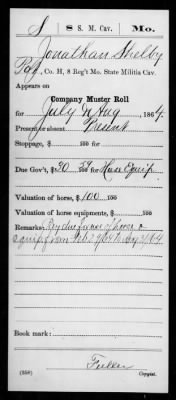 S | 8 S. M. Cav. | Mo.
Jonathan Shelby
Pvt, Co. H, 8 Reg't Mo. State Militia Cav.
Appears on
Company Muster Roll
for July & Aug, 1864.
Present or absent Present
Stoppage, $ 100 for
Due Gov't, $20 29/100 for Horse Equip
Valuation of horse, $100 100
Valuation of horse equipments, $ 100
Remarks: Pay due for use of horse &
equip from
Book mark:
Fuller
(358) Copyist.